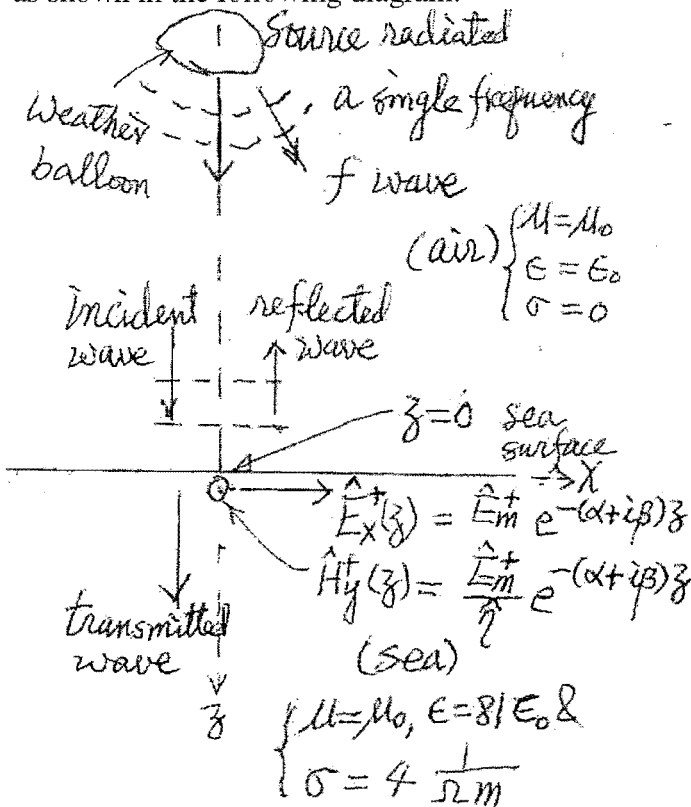 as shown in the following diagram.
Source radiated
a single frequency
f wave
Weather
balloon
(air) { μ=μ₀
ϵ=ϵ₀
σ=0
incident
wave
reflected
wave
z=0 sea
surface
X
Êₓ⁺(z) = Êₘ⁺ e^-(α+iβ)z
Ĥᵧ⁺(z) = Êₘ⁺/η̂ e^-(α+iβ)z
transmitted
wave
(sea)
z
{ μ=μ₀, ϵ=81ϵ₀ &
σ = 4 1/Ωm